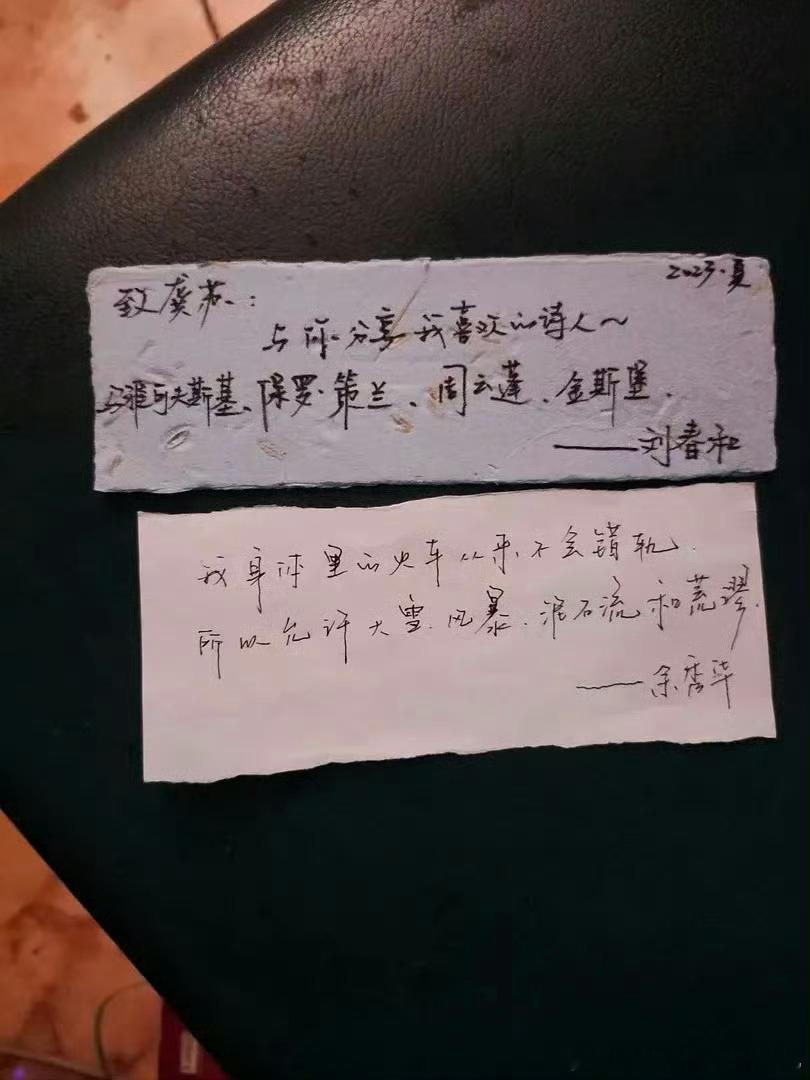 2023·夏
致虞苏:
与你分享我喜欢的诗人~
马雅可夫斯基、保罗·策兰、周云蓬、金斯堡.
——刘春和
我身体里的火车从来不会错轨.
所以允许大雪.风暴.泥石流和荒谬.
——余秀华